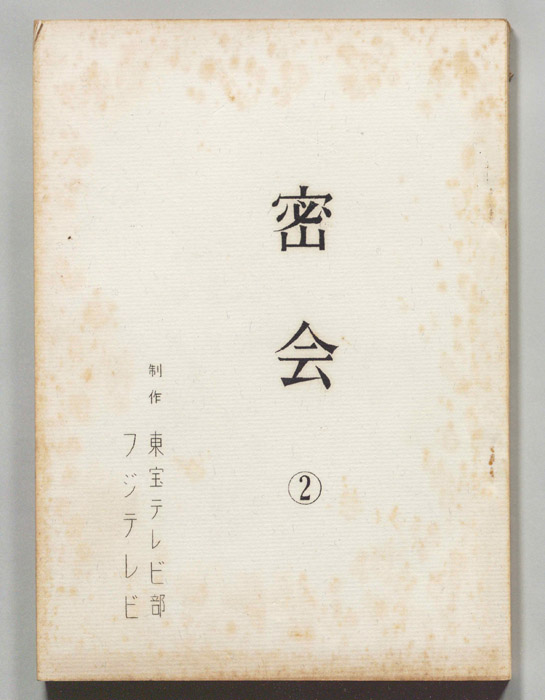 密会
②
制作 東宝テレビ部
フジテレビ